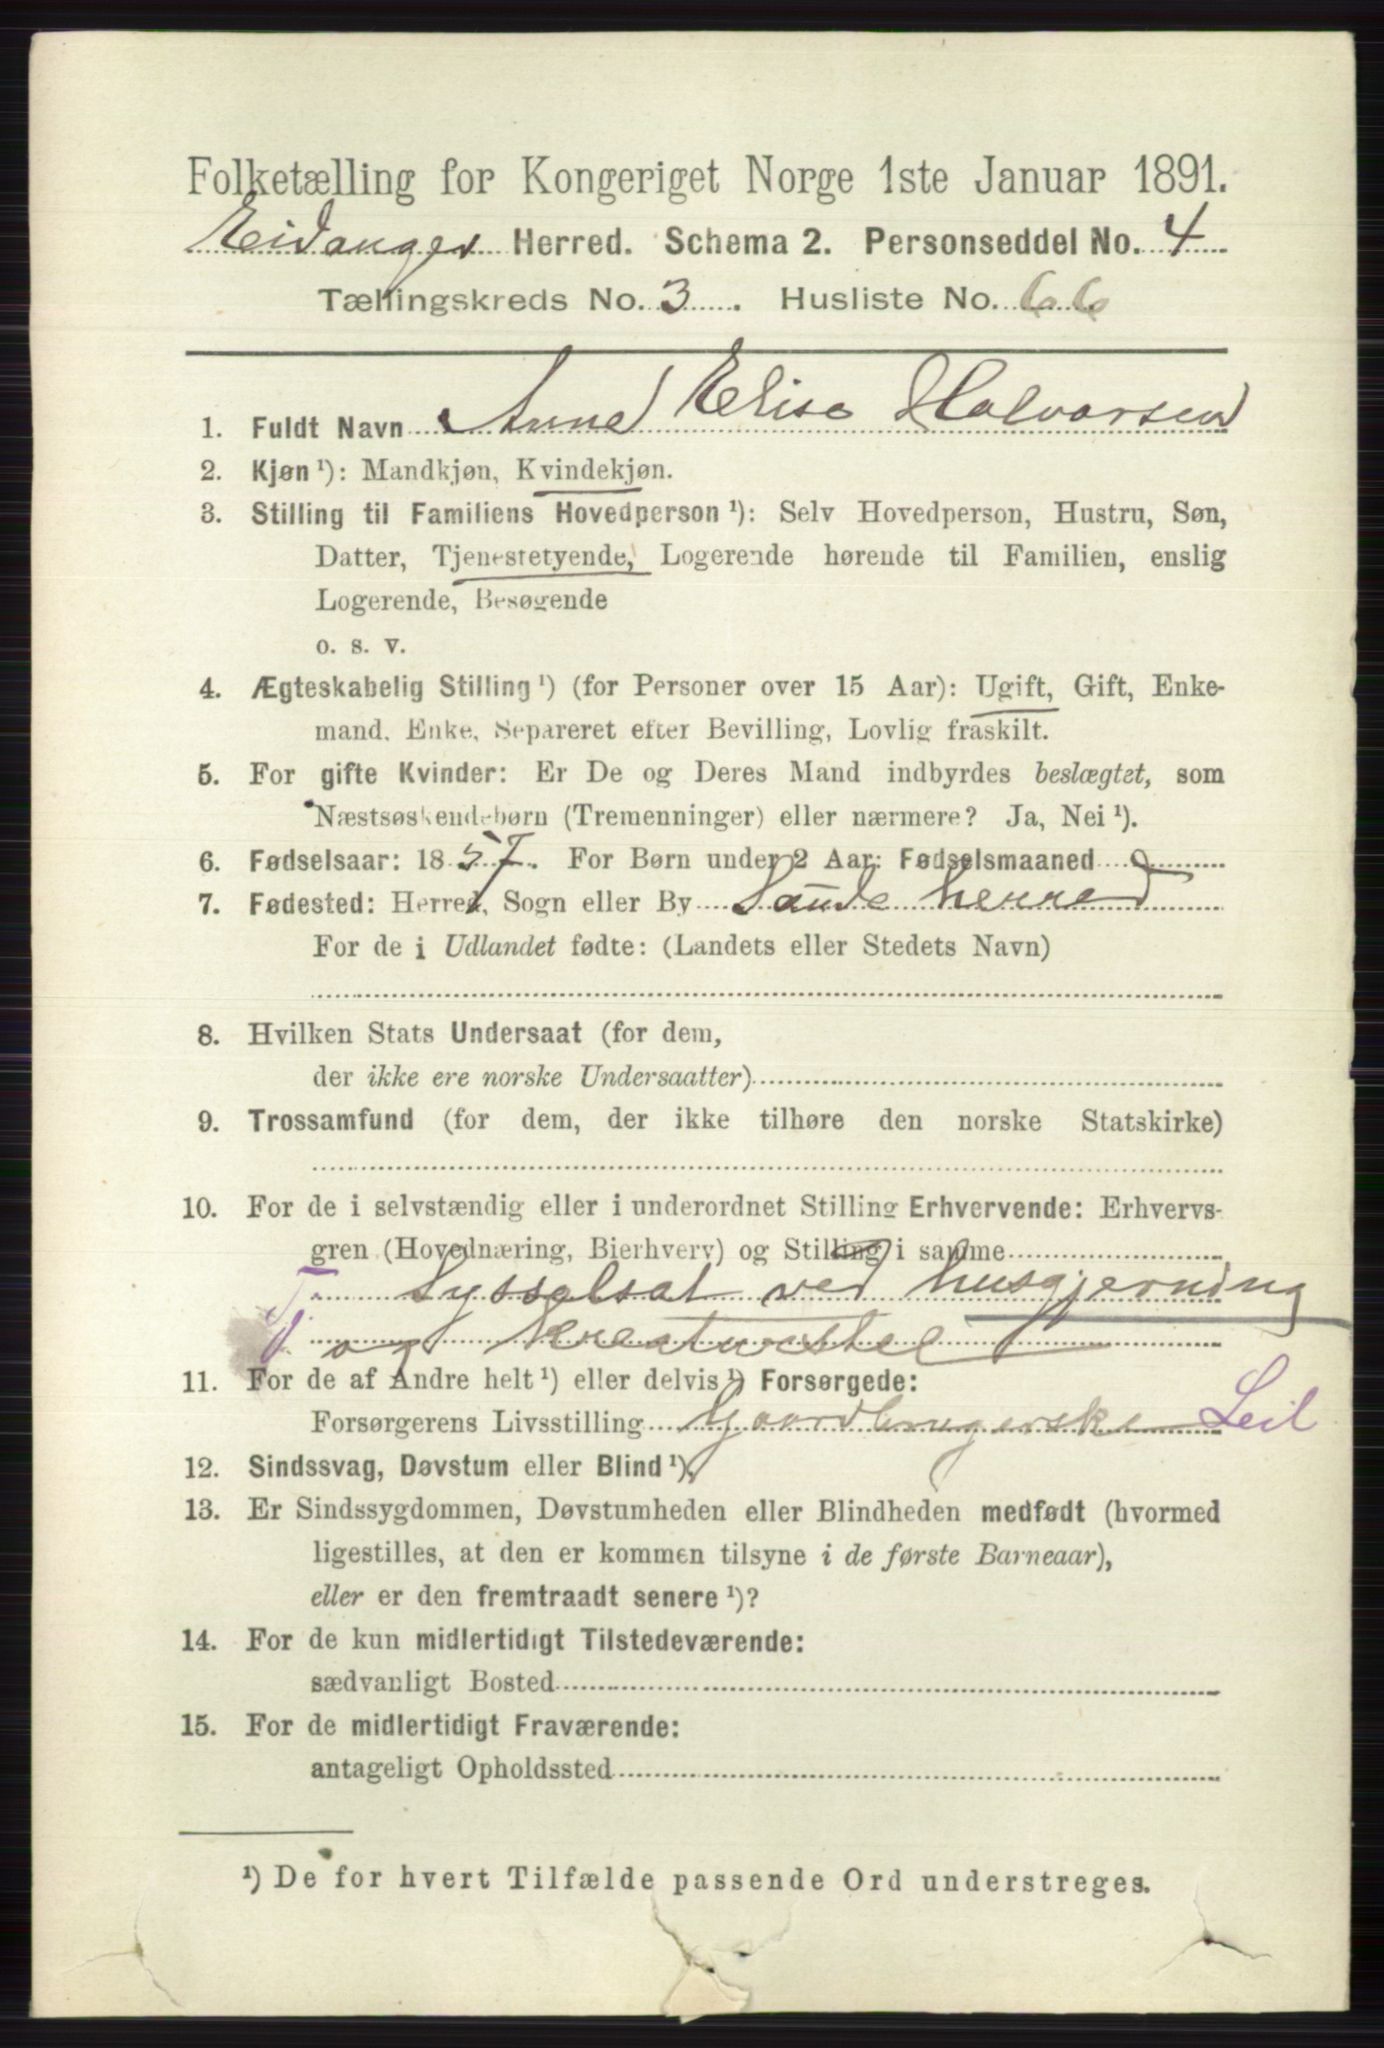 Folketælling for Kongeriget Norge 1ste Januar 1891.
Eidanger Herred. Schema 2. Personseddel No. 4
Tællingskreds No. 3. Husliste No. 66
1. Fuldt Navn Anne Elise Halvorsen
2. Kjøn ¹): Mandkjøn, Kvindekjøn.
3. Stilling til Familiens Hovedperson ¹): Selv Hovedperson, Hustru, Søn,
Datter, Tjenestetyende, Logerende hørende til Familien, enslig
Logerende, Besøgende
o. s. v.
4. Ægteskabelig Stilling ¹) (for Personer over 15 Aar): Ugift, Gift, Enke-
mand, Enke, Separeret efter Bevilling, Lovlig fraskilt.
5. For gifte Kvinder: Er De og Deres Mand indbyrdes beslægtet, som
Næstsøskendebørn (Tremenninger) eller nærmere? Ja, Nei ¹).
6. Fødselsaar: 1857. For Børn under 2 Aar: Fødselsmaaned
7. Fødested: Herred, Sogn eller By Saude herred
For de i Udlandet fødte: (Landets eller Stedets Navn)
8. Hvilken Stats Undersaat (for dem,
der ikke ere norske Undersaatter)
9. Trossamfund (for dem, der ikke tilhøre den norske Statskirke)
10. For de i selvstændig eller i underordnet Stilling Erhvervende: Erhvervs-
gren (Hovednæring, Bierhverv) og Stilling i samme
T. Sysselsat ved husgjerning
Tj. og kreaturstel
11. For de af Andre helt ¹) eller delvis ¹) Forsørgede:
Forsørgerens Livsstilling Gaardbrugerske Leil
12. Sindssvag, Døvstum eller Blind ¹).
13. Er Sindssygdommen, Døvstumheden eller Blindheden medfødt (hvormed
ligestilles, at den er kommen tilsyne i de første Barneaar),
eller er den fremtraadt senere ¹)?
14. For de kun midlertidigt Tilstedeværende:
sædvanligt Bosted
15. For de midlertidigt Fraværende:
antageligt Opholdssted
¹) De for hvert Tilfælde passende Ord understreges.